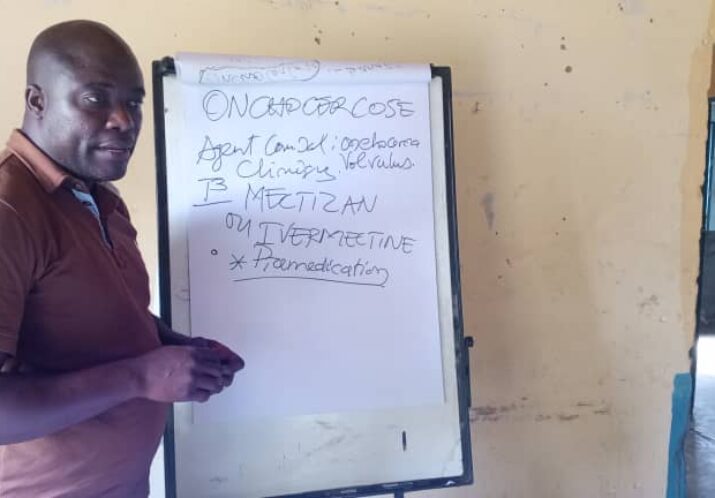 ONCHOCERCOSE
ONCHOCERCOSE
Agent Causal : onchocerca
Clinique volvulus.
MECTIZAN
OU IVERMECTINE
* Prémedication